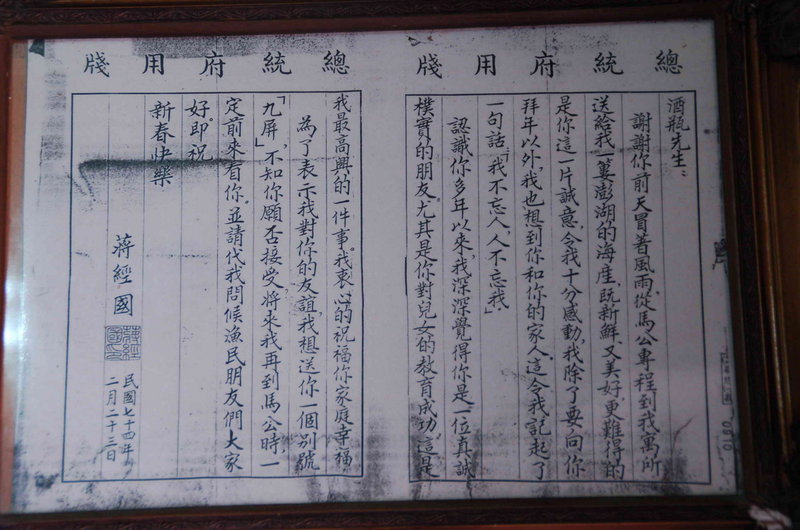 總統府用牋
酒瓶先生：
謝謝你前天冒著風雨，從馬公專程到我寓所
送給我一簍澎湖的海產，既新鮮，又美好，更難得的
是你這一片誠意，令我十分感動，我除了要向你
拜年以外，我也想到你和你的家人。這令我記起了
一句話：「我不忘人，人不忘我」。
認識你多年以來，我深深覺得你是一位真誠
樸實的朋友。尤其是你對兒女的教育成功，這是
總統府用牋
我最高興的一件事。我衷心的祝福你家庭幸福。
為了表示我對你的友誼，我想送你一個別號
「九屏」，不知你願否接受，將來我再到馬公時，一
定前來看你。並請代我問候漁民朋友們大家
好。即祝
新春快樂
蔣經國
民國七十四年
二月二十三日